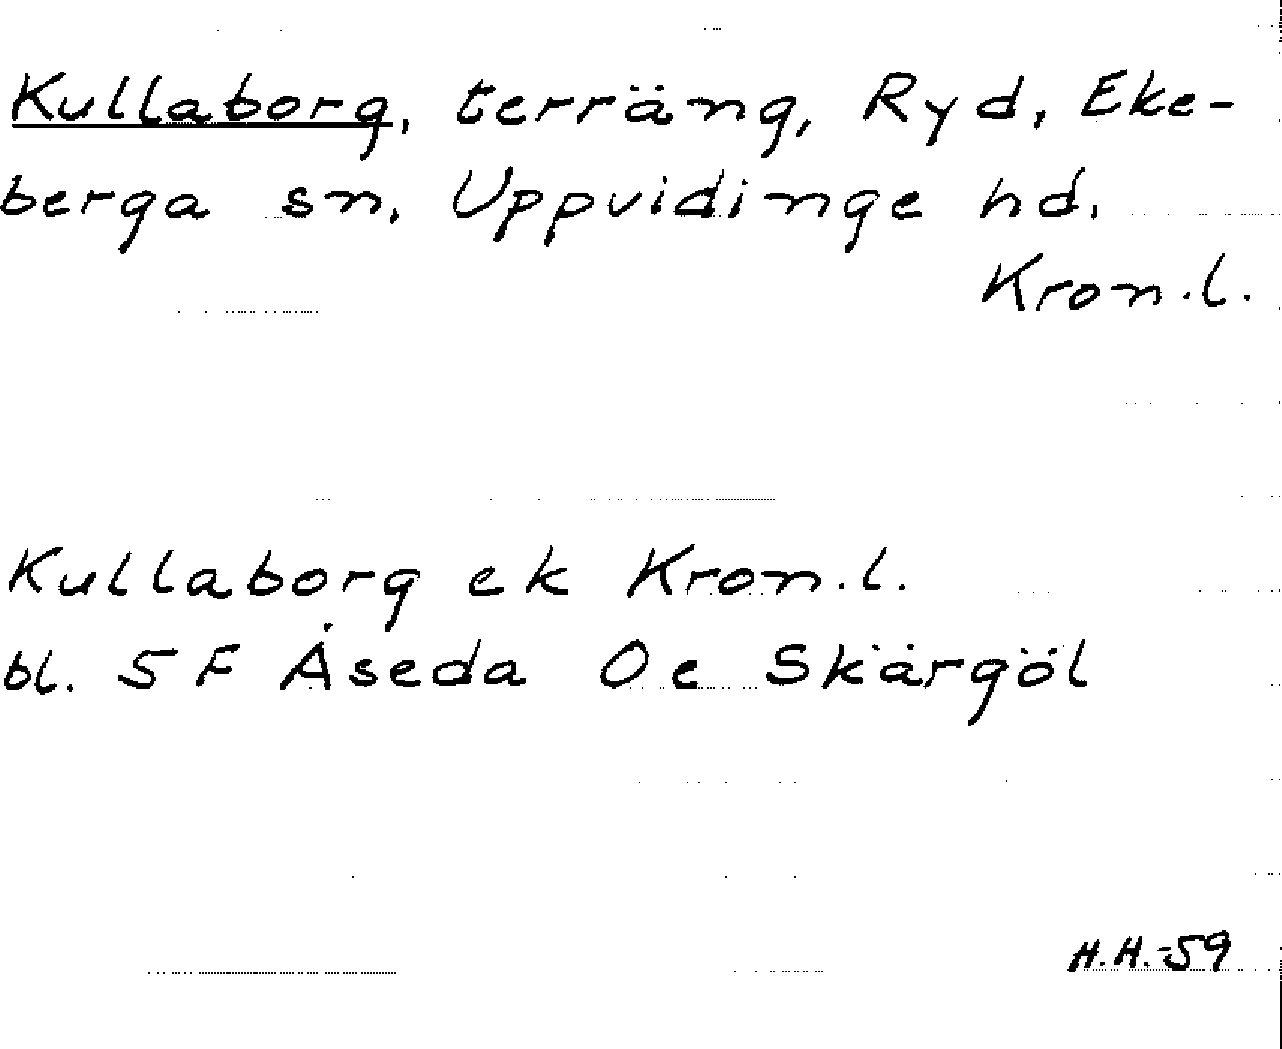 Kullaborg, terräng, Ryd, Eke-
berga sn. Uppvidinge hd.
Kron.l.
Kullaborg ek Kron.l.
bl. 5 F Åseda O e Skärgöl
H.H.-59